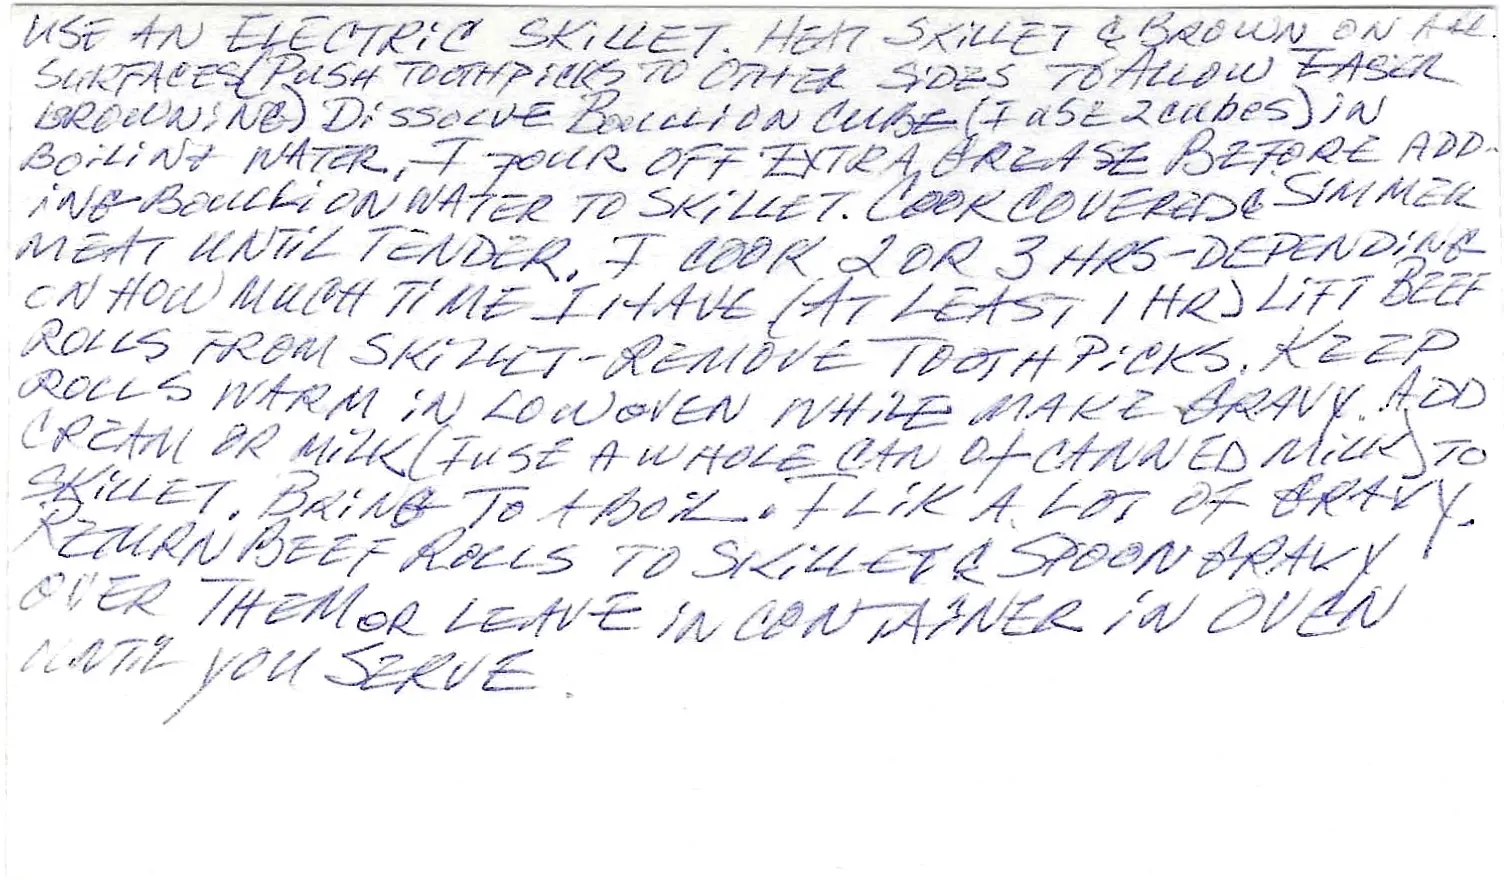 USE AN ELECTRIC SKILLET. HEAT SKILLET & BROWN ON ALL
SURFACES (PUSH TOOTHPICKS TO OTHER SIDES TO ALLOW EASER
BROWNING) DISSOLVE BOULLION CUBE (I USE 2 CUBES) IN
BOILING WATER, I POUR OFF EXTRA GREASE BEFORE ADD-
ING BOULLION WATER TO SKILLET. COOK COVERED & SIMMER
MEAT UNTIL TENDER. I COOK 2 OR 3 HRS-DEPENDING
ON HOW MUCH TIME I HAVE (AT LEAST 1 HR) LIFT BEEF
ROLLS FROM SKILLET-REMOVE TOOTHPICKS. KEEP
ROLLS WARM IN LOW OVEN WHILE MAKE GRAVY. ADD
CREAM OR MILK (I USE A WHOLE CAN Of CANNED MILK) TO
SKILLET. BRING TO A BOIL. I LIK A LOT OF GRAVY.
RETURN BEEF ROLLS TO SKILLET & SPOON GRAVY
OVER THEM OR LEAVE IN CONTAINER IN OVEN
UNTIL YOU SERVE.